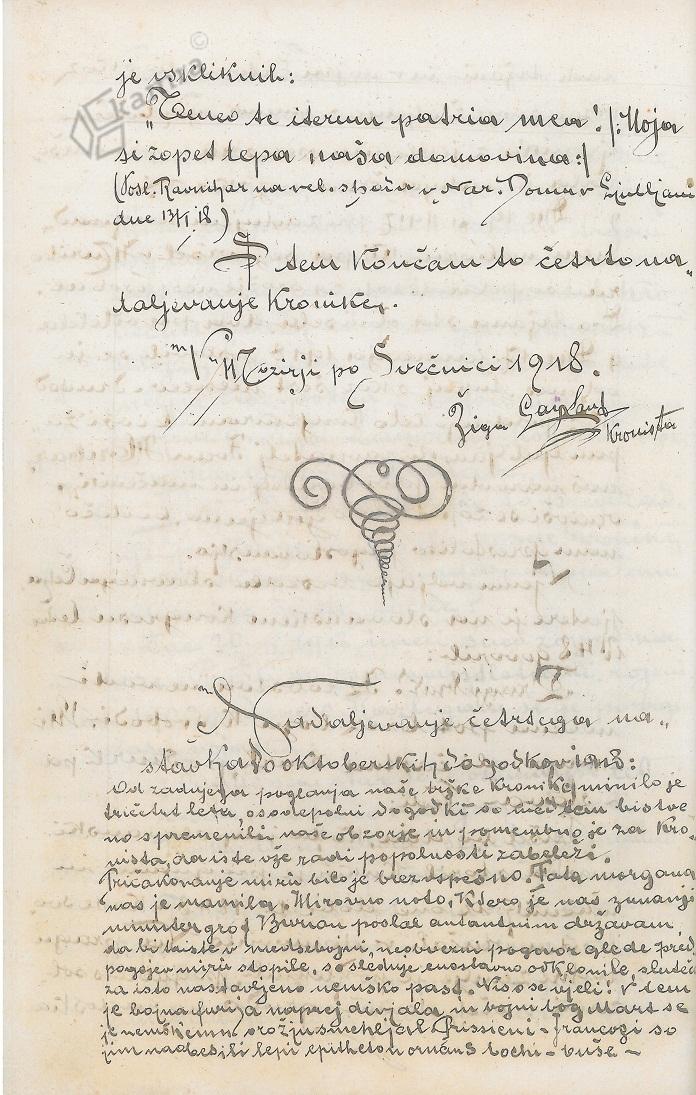 je vskliknil:
"Teneo te iterum patria mea! /: Moja
si zopet lepa naša domovina :/
(Posl. Ravnihar na vel. shodu v Nar. Domu v Ljubljani
dne 13/I. 18)
S tem končam to četrto na„
daljevanje Kronike.
V Mozirji po Svečnici 1918.
Žiga
Kronista
Nadaljevanje četrtega na„
stavka do oktoberskih dogodkov 1918:
Od zadnjega poglanja naše trške Kronike minilo je
tričetrt leta, osodepolni dogodki so med tem bistve
no spremenili naše obzorje in pomembno je za Kro„
nista, da iste vže radi popolnosti zabeleži.
Pričakovanje miru bilo je brezvspešno. Fata morgana
nas je mamila. Mirovno noto, Ktero je naš zunanji
minister grof Burian poslal antantnim državam,
da bi taiste v medsebojni, neobvezni pogovor glede pred
pogojev miru stopile, so slednje enostavno odklonile, sluteč
za isto nastavljeno nemško past. Vso so vjeli! V tem
je bojna furija naprej divjala in bojni bog Mart se
je nemškemu orožju smehljal. Prissieni - Francozi so
jim nadbesili lepi epitheton ornans bochi - buše -
kamra